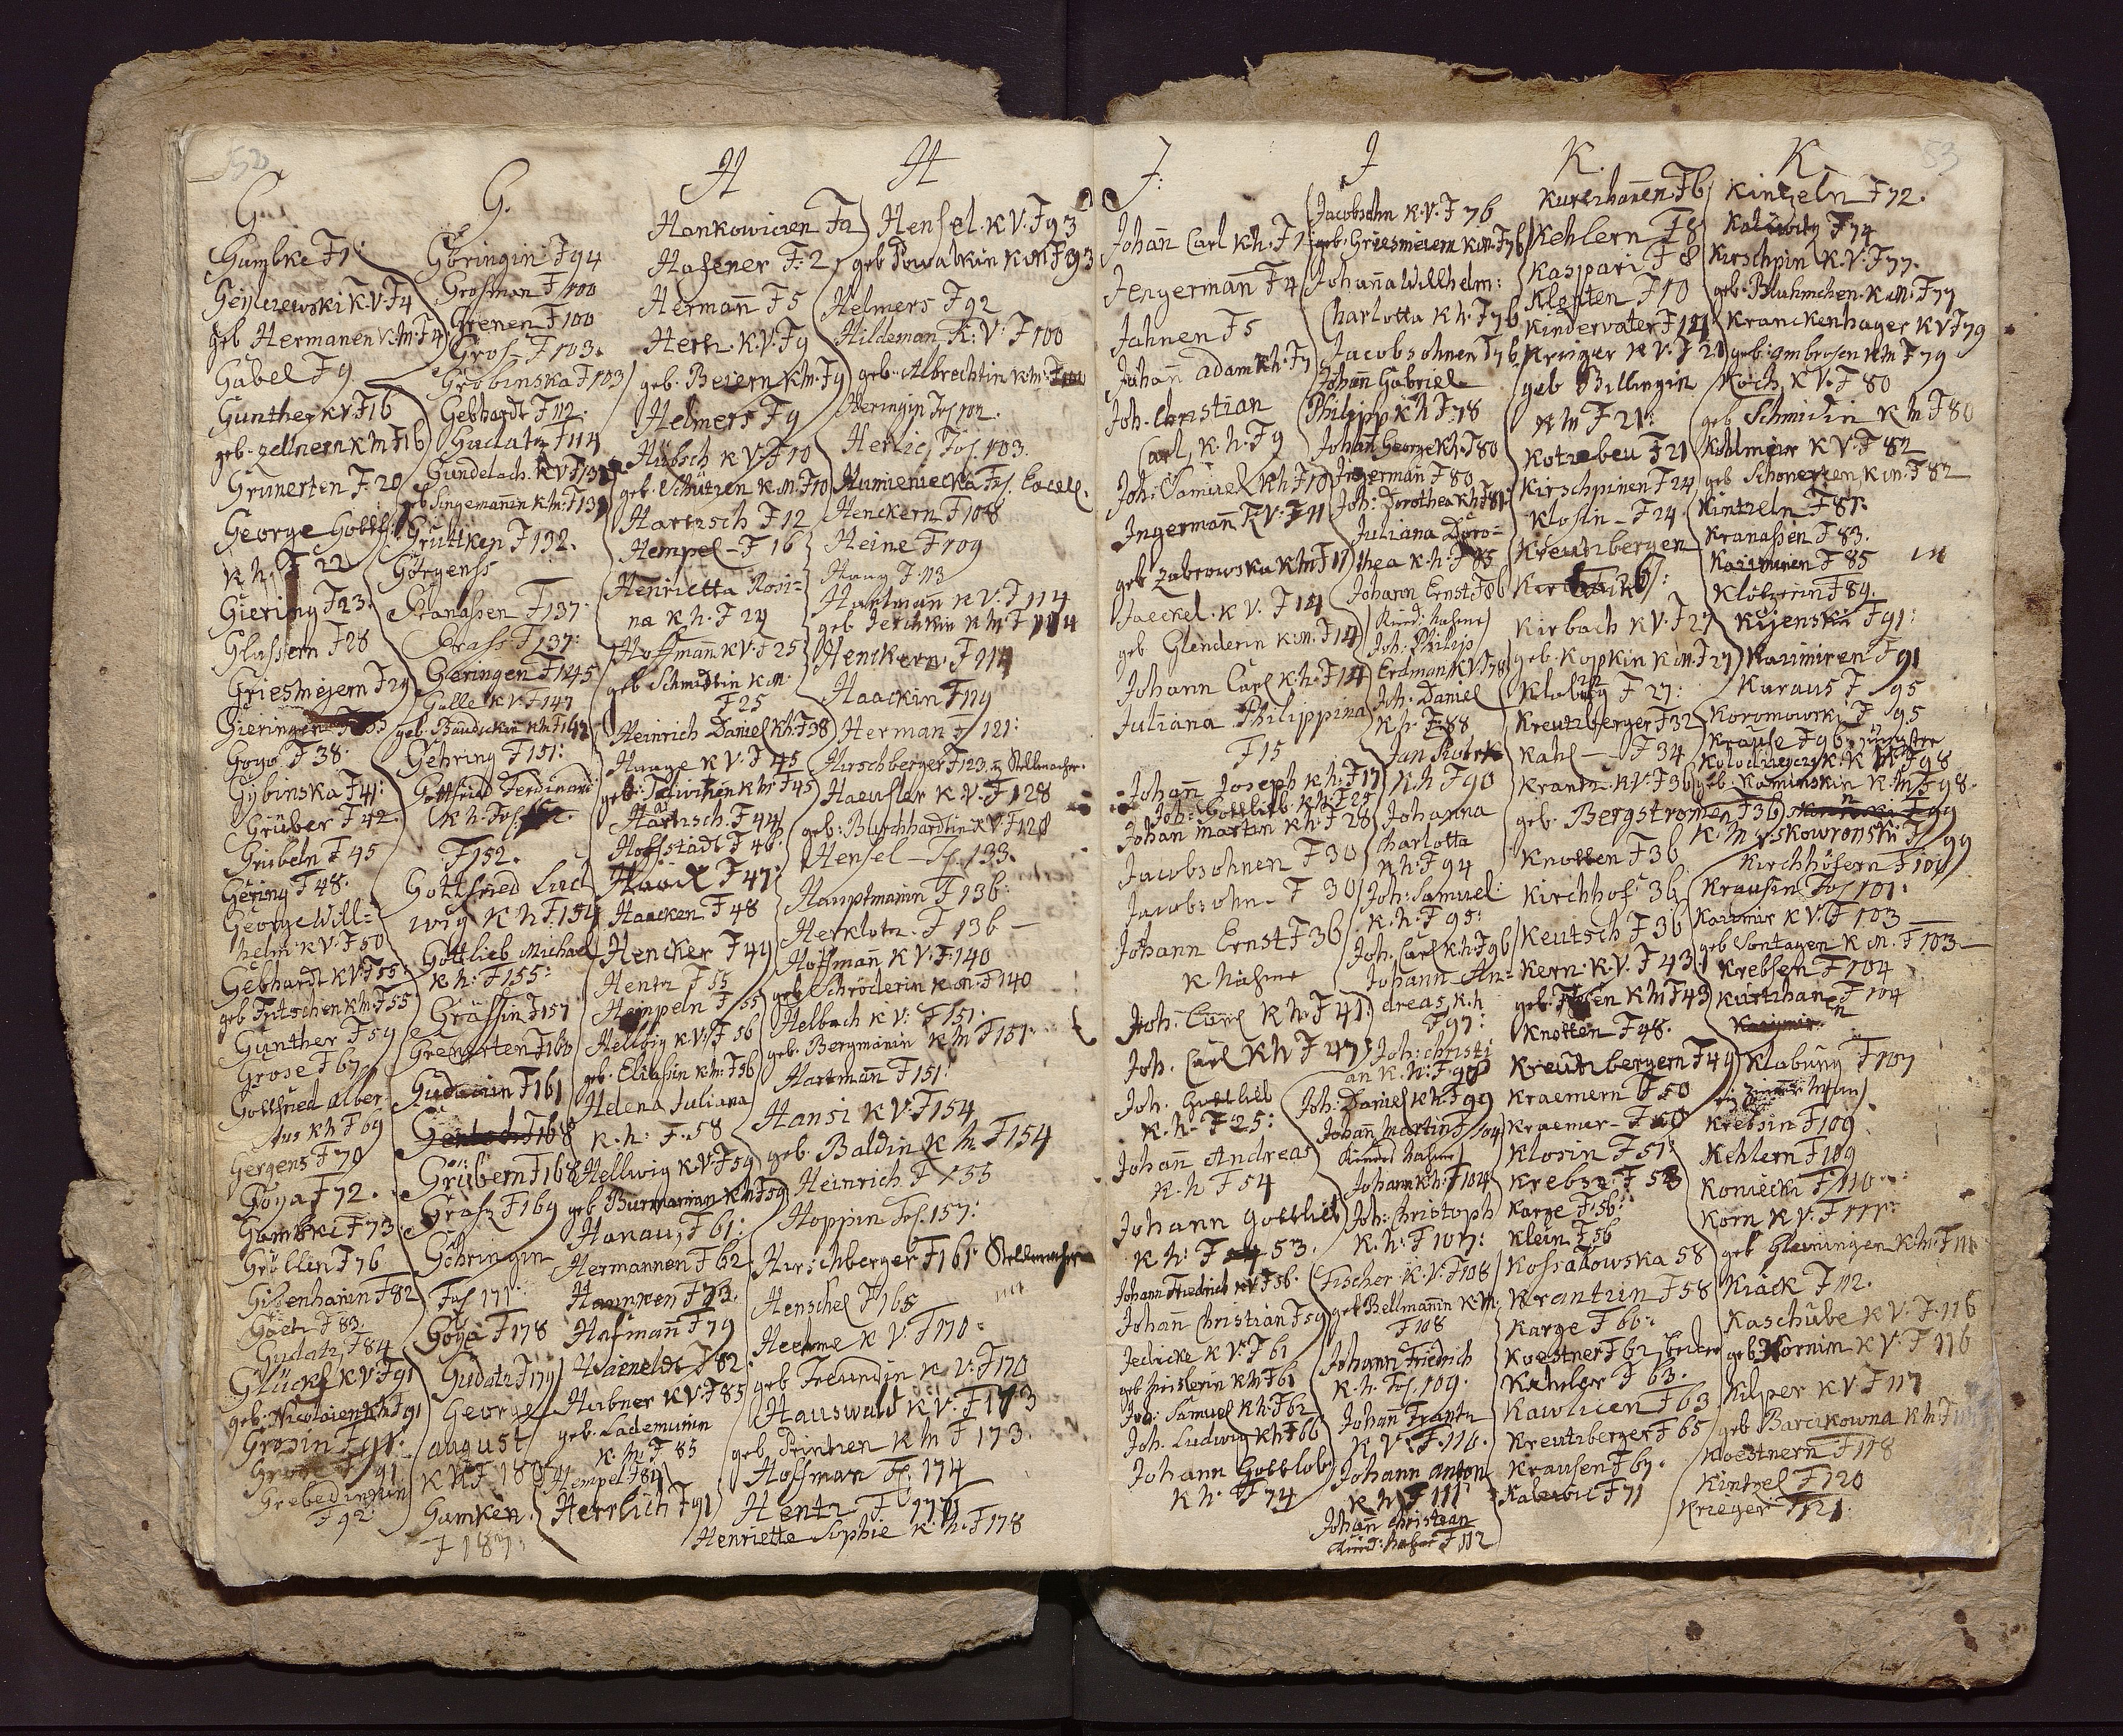 52
G.
Gumbke F1.
Geyczewski K.V. F4
geb Hermanen K.M. F4
Gabel F9
Gunther KV F16
geb. Zellnern KM F16
Grunerten F. 20
George Gottf:
K h. F 22
Giering F23.
Glassern F28
Griesmejern F29
Goyo F 38.
Gybinska F41.
Grüber F 42.
Grübeln F 45
Gering F 48.
George Will=
helm K.V. F50
Gebhardt KV. F55.
geb Fritschen K.M. F55
Gunther F59
Grose F67
Gottfried Alber-
tus Kh F69
Gergens F70
Goya F72.
Gambke F73
Göllen F76
Gibenhanin F82
Goetz F 83.
Gudatz F84
Glück KV F91
geb. Nicolaien Kh F91
Grosin F91.
Grose F91
Grebedingin
F92
G.
Göringin F94
Grosman F100
Grenen F100
Gross F103.
Grobinska F103
Gebhardt F112.
Gudatz F114
Gundelach. KV F131
geb Singemanin K.M. F131
Gruttken F132.
Görgenss
Granassen F137.
Grass F137:
Geringen F145
Golle K.V. F147
geb. Baudickin K.M. F147
Gehring F151:
Gottfried Ferdinand
K h. Fol.
F152.
Gottfried Lud
wig K h F. 154
Gottlieb Michael
K h: F155:
Grässin F157
Grenerten F160
Gudatzin F161
F168
Grübern F168
Grasz F169
Göhringin
Fol. 171.
Goya F178
Gudatz F179
George
august
K h F 180
Gamken
F 187.
H
Hankowiczen F2
Hafener F. 2
Hermann F5
Herh. K.V. F9
geb. Beiern K.M. F9
Helmers F9
Hübsch KV. F10
geb. Schutzen K.M. F10
Hartzsch F12
Hempel - F 16
Henrietta Rosi=
na K.h. F 24
Hoffmann KV. F 25
geb Schmidtin K.M.
F25
Heinrich Daniel Kh. F38
Haage K.V. F45
Hartzsch. F44
Hoffstädt F 46.
Haack F47:
Haacken F48
Hencker F49
Hentz F 55
Hempeln F55
Hellwig K.V. F 56
geb. Eliassin K.M. F56
Helena Juliana
K.h: F. 58
Hellwig K.V. F59
geb Burmannan K.M. F59
Hanau, F61:
Hermannen F62
Hannken F73.
Hafmann F79
Hübner KV. F85
geb. Lademunin
K.M. F 85
Hempel F84
Herrlich F91
H
Hensel. K.V. F93
geb Powalkin K.M. F93
Helmers F92
Hildeman K: V: F100
geb. Albrechtin K.M. F100
Heringin Fol. 102.
Herlic, Fol. 103.
Humieniecka Fol. eodem.
Henckern F108
Heine F109
Haag F. 113
Hartmann K.V. F 114
geb Jerchkin K.M. F114
Henckern. F114
Haackin F119
Herman F121:
Hirschberger F123. Stellmacher.
Haeusler K.V. F128
geb: Burchhardtin K.V. F128
Hensel - F. 133.
Hauptmanin F136.
Herklotz. F 136 -
Hoffmann KV. F140
geb. Schröderin K.M. F140
Helbach K.V: F151.
geb. Bergmanin K.M. F151.
Hartmann F151.
Hansi K.V. F154
geb. Baldin K.M. F154
Heinrich F 155
Hoppin Fol. 157:
Hirschberger F161. Stellmacher
Henschel F165
Heehme K.V. F170:
geb Freundin K.V. F170
Hauswald K.V. F173
geb. Printzen K.M. F173.
Hoffman Fol. 174
Hentz F 177
Henriette Sophie K.h. F178
J:
Johann Carl Kh. F1
Jengermann F4
Jahnen F5
Johann adam Kh. F7
Joh. Christian
Carl, K.h. F9
Joh. Samuel Kh. F10
Ingermann K.V. F11
geb Zabrowska K.M. F11
Jaeckel. K.V. F14
geb. Glenderin K.M. F14
Johann Carl K.h. F14
Juliana Philippina
F15
Johann Joseph K.h. F17
Joh: Gottlieb Kh. F25
Johan Martin K.h. F28
Jacobsohnen F30
Jacobsohn - F 30
Johann Ernst F36
K Nahme
Joh. Carl K.h. F 41:
Joh. Carl Kh F 47
Joh. Gottlieb
K.h: F 25:
Johann Andreas
K.h F54
Johann Gottlieb
K h: F 53.
Johann Friedrich KV F56.
Johann Christian F59
Jedicke K.V. F61
Joh: Samuel Kh: F62
Joh. Ludwig Kh F66
Johann Gottlob
K h. F 74
J
Jacobsohn K.V. F 76
geb. Griesmeiern K.M. F76
Johanna Wilhelm:
Charlotta K h. F76
Jacobsohnen F76
Johann Gabriel
Philipp K h F78
Johann George Kh. F80
Ingerman F 80
Joh: Dorothea Kh F81
Juliana Doro=
thea K h: F 85
Johann Ernst F86
Kind: Nahme
Joh. Philip
Erdman K.V. F78
Joh. Daniel
K h. F88
Jan Piotr
K.h. F90
Johanna
Charlotta
K h. F94
Joh: Samuel
K.h. F 95:
Joh. Carl K.h. F96
Johann An=
dreas, K.h
F97:
Joh: Christi
an K.h: F. 98
Joh. Daniel K.h. F99
Johann Martin F104
Kindes Nahme
Johann K.h: F104
Joh: Christoph
K.h: F 107:
Fischer K.V. F108
geb Bellmannin K.M.
F108
Johann Friedrich
K.h. Fol. 109.
Johann Frantz
K V. F. 110.
Johann anton
K h. F 111
Johann Christian
Kind: Nahme F112
K.
Kurtzhanen. F6
Kehlern F8
Kaspari F 8
Klepten F10
Kindervater F121
Kruger K.V. F21
geb Billingin
K M F 21:
Kotzebeu F21
Kirschpinen F24
Klosin - F 24
Kreutzbergen
Kirbach K.V. F27
geb. Kopkin K.M. F27
Klabung F 27:
Kreutzberger F32
Kahl - F 34
Krantz K.V. F36
geb. Bergstromen F36
Knotten F36
Kirchhof 36
Keutsch F36
Kern. K.V. F43
Knotten F48.
Kreutzbergern F49
Kraemern F50
Kraemer - F 50
Klosin F51:
Krebsz. F 53
Karge F. 56:
Klein F56
Kossakowska 58
Krantzin F58
Karge F 66:
Koestner F62
Kahnler F 63.
Kawlicen F63
Kreutzberger F65
Krausen F67.
Kalewic F71
K
53
Kintzeln F72.
Kalowitz F74
Kirschpin K.V. F77.
geb. Bluhmchen. K.M. F77
Kranckenhager KV F79
geb: Ambrosen K.M. F79
Koch KV. F80
geb Schmidin K M F80
Kohlmeier K V. F 82
geb Schönerten K.M. F82
Kintzeln F81.
Kranassen F 83.
Kazimiren F 85
Klötzerin F84.
Kijenski F91:
Kazimiren F91
Karaus F 95
Koromowski F 95
Krause F96
geb. Kaminskin K.M. F98.
Skowronski F 99
Kirchhöfern F100
Krausin Fol. 101.
Kazimir K.V. F103
geb Sontagen K.M. F103
Krebsen F104
Kurtzhan F 104
Klabung F107
Krebsin F109
Kehlern F109
Koniecki F110
Korn K.V. F111.
geb Gleiningen K.M. F111
Kiack F112.
Kaschube K.V. F. 116
geb Kornin K.V. F 116
Kilper K.V. F117
geb Barcikowna K.M. F117
Koestnern F118
Kintzel F120
Krieger F121.